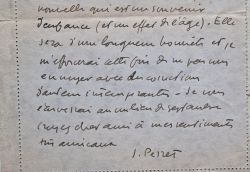 nouvelle qui est un souvenir
d'enfance (et un effet de l'âge). Elle
sera d'une longueur honnête et je
m'efforcerai cette fois de ne pas vous
envoyer avec de correction
d'auteur intempérantes. Je vous
renverrai au milieu de septembre
croyez cher ami à mes sentiments
très amicaux
J. Perret